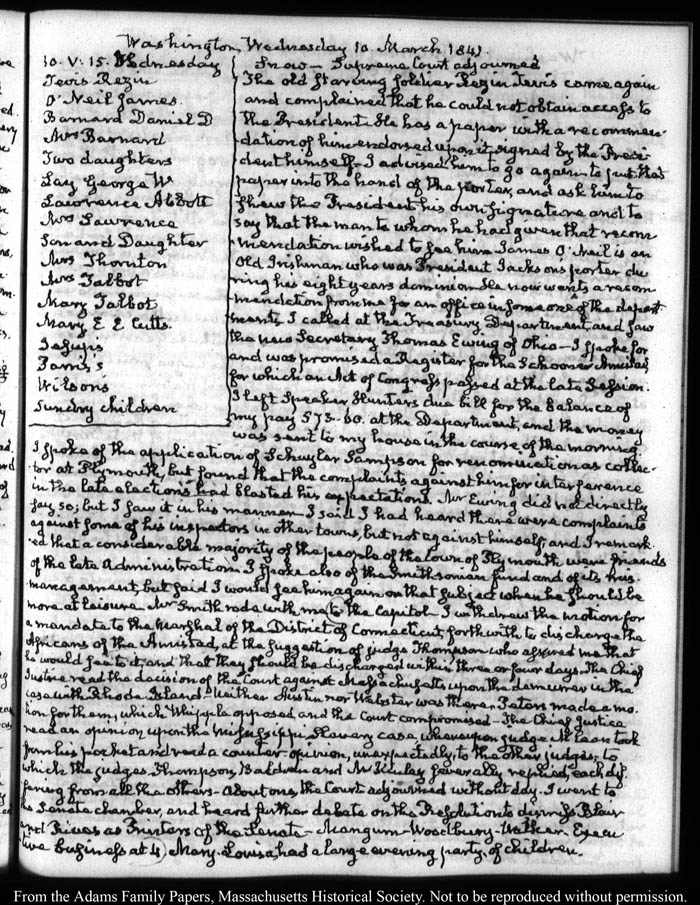 Washington, Wednesday 10. March 1841.
10. V: 15. Wednesday
Tevis Rezin
O'Neil James.
Barnard Daniel D
Mrs Barnard
Two daughters
Lay George W
Lawrence Abbott
Mrs Lawrence
Son and Daughter
Mrs Thornton
Mrs Talbot
Mary Talbot
Mary E E Cutts.
Jesup's
Wilsons
Sundry children
Snow — Supreme Court adjourned
The old starving soldier Rezin Tevis came again
and complained that he could not obtain access to
the President. He has a paper with a recommen-
dation of him endorsed upon it, signed by the Presi-
dent himself — I advised him to go again to put that
paper into the hand of the porter, and ask him to
shew the President his own signature and to
say that the man to whom he had given that recom
mendation wished to see him. James O'Neil is an
old Irishman who was President Jackson's porter du
ring his eight years dominion. He now wants a recom
mendation from me for an office in some one of the depart
ments. I called at the Treasury Department, and saw
the new Secretary Thomas Ewing of Ohio — I spoke for
and was promised a Register for the Schooner Amistad
for which an Act of Congress passed at the late Session.
I left Speaker Hunter's due bill for the balance of
my pay 573-60. at the Department, and the money
was sent to my house in the course of the morning.
I spoke of the application of Schuyler Sampson for renomination as collec-
tor at Plymouth, but found that the complaints against him for interference
in the late elections had blasted his expectations. Mr Ewing did not directly
say so; but I saw it in his manner — I said I had heard there were complaints
against some of his inspectors in other towns, but not against himself, and I remark
ed that a considerable majority of the people of the town of Plymouth were friends
of the late Administration. I spoke also of the Smithsonian fund and of its mis
management, but said I would see him again on that subject when he should be
more at leisure. Mr Smith rode with me to the Capitol — I withdrew the motion for
a mandate to the Marshal of the District of Connecticut, forthwith to discharge the
Africans of the Amistad, at the suggestion of judge Thompson who assured me that
he would see to it, and that they should be discharged within three or four days. The Chief
Justice read the decision of the Court against Massachusetts upon the demurrer in the
case with Rhode Island — Neither Austin nor Webster was there. made a mo
tion for them, which Whipple opposed, and the Court compromised — The Chief Justice
read an opinion upon the Mississippi Slavery case, whereupon judge McLean took
from his pocket and read a counter-opinion, unexpectedly, to the other judges; to
which the judges Thompson, Baldwin and McKinley severally replied, each dif-
fering from all the others — About one, the Court adjourned without day. I went to
the Senate chamber, and heard further debate on the Resolution to dismiss Blair
and Rives as Printers of the Senate — Mangum — Woodbury — Walker. Execu
tive business at 4) Mary-Louisa, had a large evening party of children.
From the Adams Family Papers, Massachusetts Historical Society. Not to be reproduced without permission.